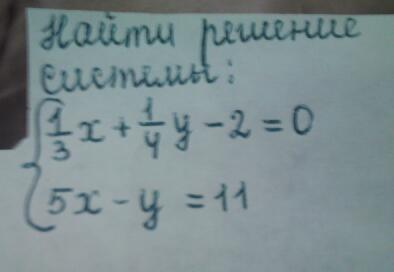 Найти решение
системы:
1/3 x + 1/4 y - 2 = 0
5x - y = 11